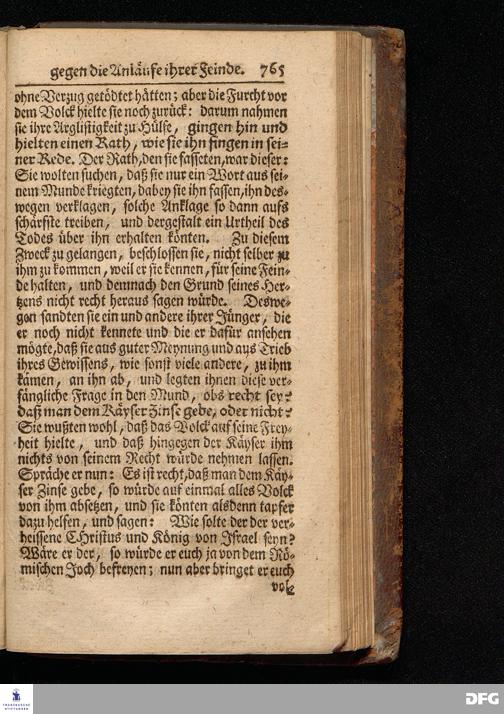 gegen die Anläufe ihrer Feinde. 765
ohne Verzug getödtet hätten; aber die Furcht vor
dem Volck hielte sie noch zurück: darum nahmen
sie ihre Arglistigkeit zu Hülfe, gingen hin und
hielten einen Rath, wie sie ihn fingen in sei-
ner Rede. Der Rath, den sie fasseten, war dieser:
Sie wolten suchen, daß sie nur ein Wort aus sei-
nem Munde kriegten, dabey sie ihn fassen, ihn des-
wegen verklagen, solche Anklage so dann aufs
schärfste treiben, und dergestalt ein Urtheil des
Todes über ihn erhalten könten. Zu diesem
Zweck zu gelangen, beschlossen sie, nicht selber zu
ihm zu kommen, weil er sie kennen, für seine Fein-
de halten, und demnach den Grund seines Her-
tzens nicht recht heraus sagen würde. Deswe-
gen sandten sie ein und andere ihrer Jünger, die
er noch nicht kennete und die er dafür ansehen
mögte, daß sie aus guter Meynung und aus Trieb
ihres Gewissens, wie sonst viele andere, zu ihm
kämen, an ihn ab, und legten ihnen diese ver-
fängliche Frage in den Mund, obs recht sey?
daß man dem Käyser Zinse gebe, oder nicht?
Sie wußten wohl, daß das Volck auf seine Frey-
heit hielte, und daß hingegen der Käyser ihm
nichts von seinem Recht würde nehmen lassen.
Spräche er nun: Es ist recht, daß man dem Käy-
ser Zinse gebe, so würde auf einmal alles Volck
von ihm absetzen, und sie könten alsdenn tapfer
dazu helfen, und sagen: Wie solte der der ver-
heissene CHristus und König von Israel seyn?
Wäre er der, so würde er euch ja von dem Rö-
mischen Joch befreyen; nun aber bringet er euch
vol-
FRANCKESCHE
STIFTUNGEN
DFG